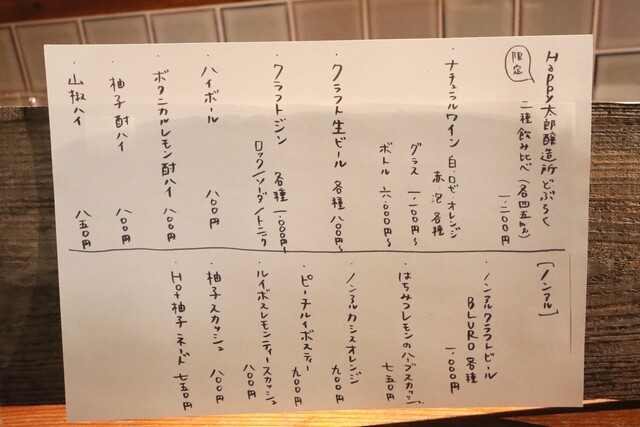 Happy太郎醸造所どぶろく
限定
二種飲み比べ(各四五ml)
一、二〇〇円
・ナチュラルワイン 白・ロゼ・オレンジ
赤・泡 各種
グラス 一、二〇〇円〜
ボトル 六、〇〇〇円〜
・クラフト生ビール 各種 八〇〇円〜
・クラフトジン 各種 一、〇〇〇円〜
ロック/ソーダ/トニック
・ハイボール 八〇〇円
・ボタニカルレモン酎ハイ 八〇〇円
・柚子酎ハイ 八〇〇円
・山椒ハイ 八五〇円
[ノンアル]
・ノンアルクラフトビール
BLURO 各種
一、〇〇〇円
・はちみつレモンのハーブスカッシュ
七五〇円
・ノンアルカシスオレンジ
九〇〇円
・ピーチルイボスティー
九〇〇円
・ルイボスレモンティースカッシュ
八〇〇円
・柚子スカッシュ 八〇〇円
・Hot柚子ネード 七五〇円